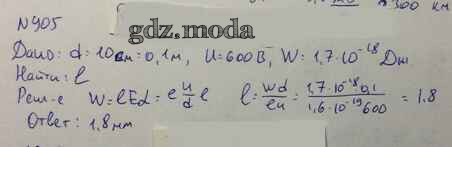 300 км
N 905
gdz.moda
Дано: d = 10 см = 0,1 м, U = 600 В, W = 1,7·10⁻¹⁸ Дж
Найти: l
Реш-е W = lEd = e u/d l l = wd/eu = 1,7·10⁻¹⁸ 0,1/1,6·10⁻¹⁹ 600 = 1.8
Ответ: 1,8 мм